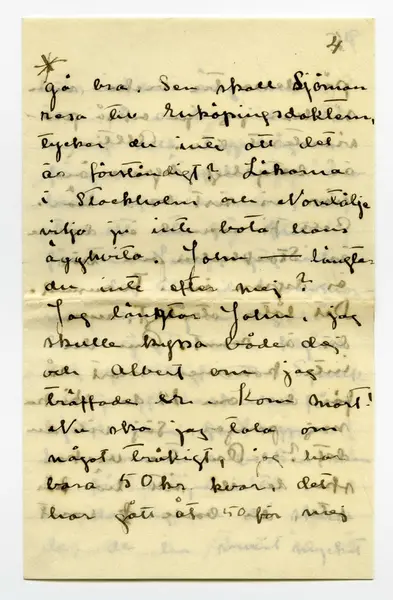 4
gå bra. Sen skall Sjöman
resa till Enköpingsdoktorn,
tycker du inte att det
är förståndigt? Läkarna
i Stockholm och Norrtälje
vilja ju inte bota hans
ägghvita. John — längtar
du inte efter mej?
Jag längtar John, jag
skulle kyssa både dej
och Albert om jag
träffade er. Kom snart!
Nu ska jag tala om
något tråkigt, jag har
bara 50 kr kvar, det
har gått åt 50 för mej